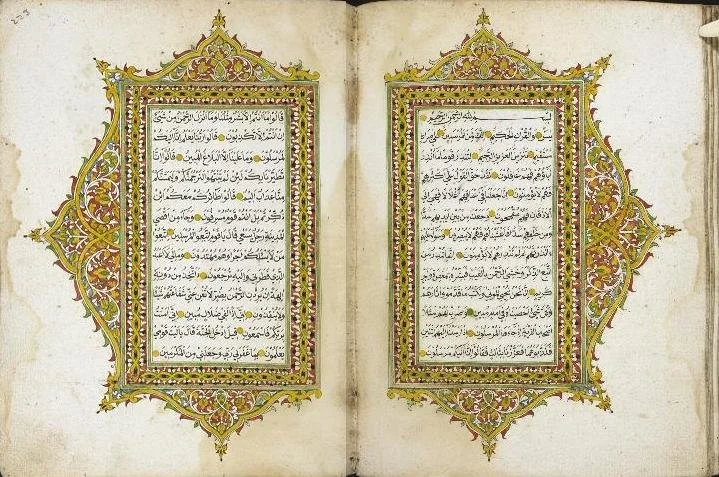 بسم الله الرحمن الرحيم
يس والقران الحكيم انك لمن المرسلين على صراط
مستقيم تنزيل العزيز الرحيم لتنذر قوما ما انذر
اباؤهم فهم غافلون لقد حق القول على اكثرهم
فهم لا يؤمنون انا جعلنا في اعناقهم اغلالا فهي الى
الاذقان فهم مقمحون وجعلنا من بين ايديهم سدا
ومن خلفهم سدا فاغشيناهم فهم لا يبصرون وسواء عليهم
ءانذرتهم ام لم تنذرهم لا يؤمنون انما تنذر من
اتبع الذكر وخشي الرحمن بالغيب فبشره بمغفرة واجر
كريم انا نحن نحي الموتى ونكتب ما قدموا واثارهم
وكل شيء احصيناه في امام مبين واضرب لهم مثلا
اصحاب القرية اذ جاءها المرسلون اذ ارسلنا اليهم اثنين
فكذبوهما فعززنا بثالث فقالوا انا اليكم مرسلون
223
قالوا ما انتم الا بشر مثلنا وما انزل الرحمن من شيء
ان انتم الا تكذبون قالوا ربنا يعلم انا اليكم
لمرسلون وما علينا الا البلاغ المبين قالوا انا
تطيرنا بكم لئن لم تنتهوا لنرجمنكم وليمسنكم
منا عذاب اليم قالوا طائركم معكم ائن
ذكرتم بل انتم قوم مسرفون وجاء من اقصى
المدينة رجل يسعى قال يا قوم اتبعوا المرسلين اتبعوا
من لا يسئلكم اجرا وهم مهتدون وما لي لا اعبد
الذي فطرني واليه ترجعون ءاتخذ من دونه
الهة ان يردن الرحمن بضر لا تغن عني شفاعتهم شيئا
ولا ينقذون اني اذا لفي ضلال مبين اني امنت
بربكم فاسمعون قيل ادخل الجنة قال يا ليت قومي
يعلمون بما غفر لي ربي وجعلني من المكرمين